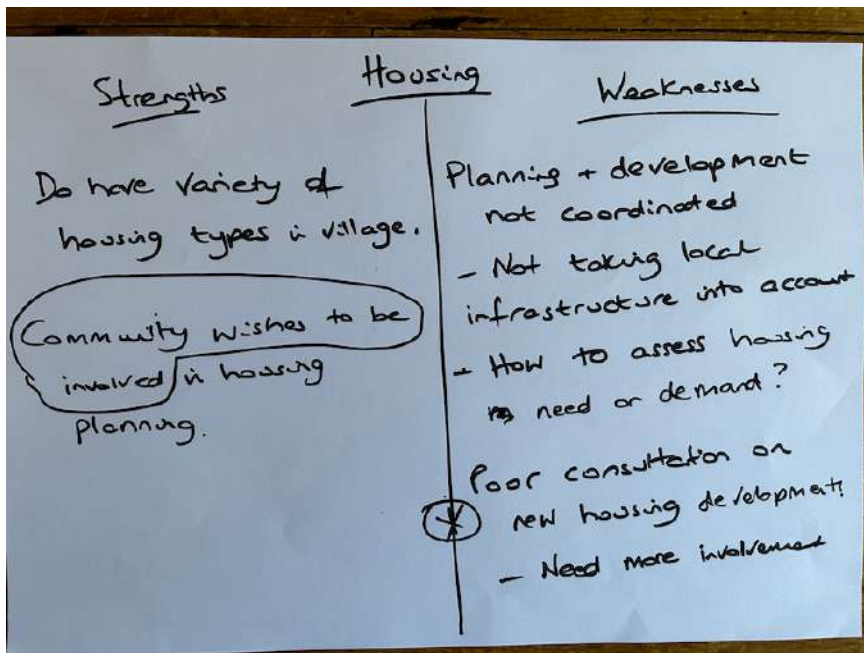 Housing
Strengths
Do have variety of
housing types in village.
Community wishes to be
involved in housing
planning.
Weaknesses
Planning + development
not coordinated
- Not taking local
infrastructure into account
- How to assess housing
need or demand?
Poor consultation on
new housing development!
- Need more involvement